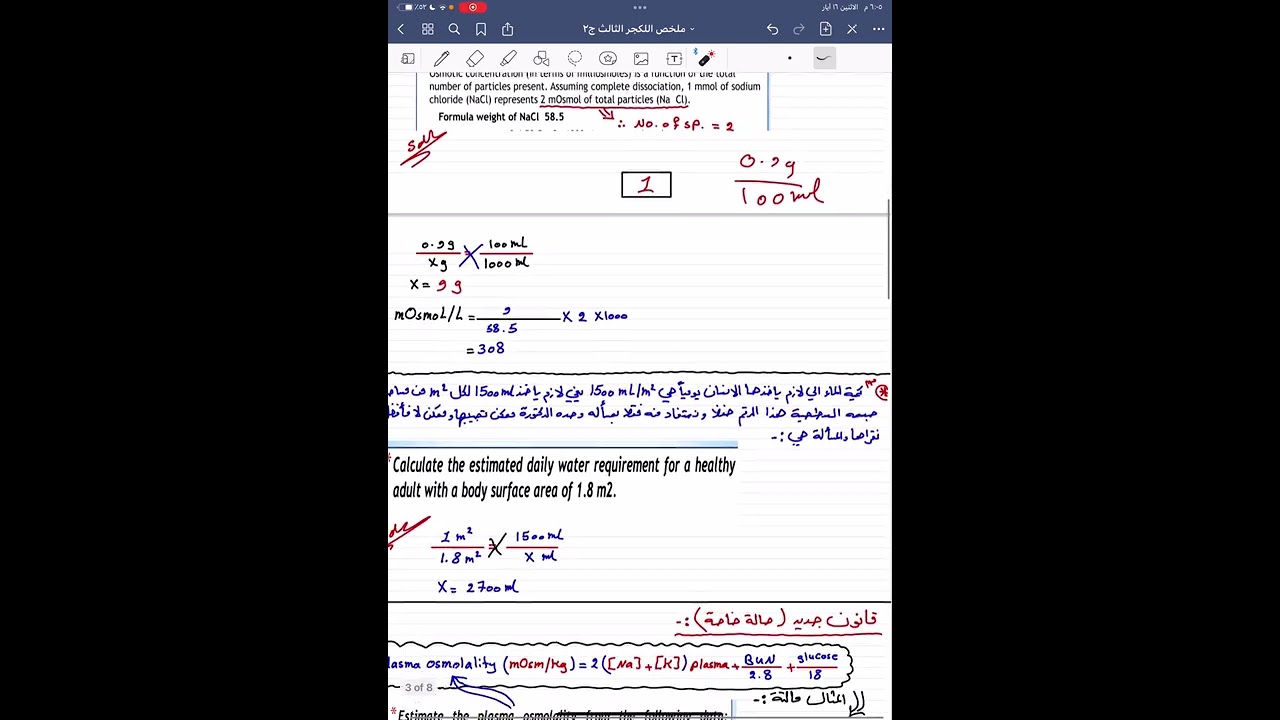 ٦:٠٥ م الاثنين ١٦ أيار
٥٢٪
ملخص اللكجر الثالث ج٢
Osmotic concentration (in terms of milliosmoles) is a function of the total
number of particles present. Assuming complete dissociation, 1 mmol of sodium
chloride (NaCl) represents 2 mOsmol of total particles (Na Cl).
Formula weight of NaCl 58.5
∴ No. of sp. = 2
1
0.9g
100ml
0.9g 100 mL
xg 1000 mL
X = 9 g
mOsmoL/L = 9 × 2 ×1000
58.5
= 308
كمية الماء الي لازم ياخذها الانسان يومياً هي 1500 mL/m² يعني لازم ياخذ 1500 ml لكل m² من
هذا الرقم حفظ ونستفاد منه فقط بمسألة وحده
هي :-
Calculate the estimated daily water requirement for a healthy
adult with a body surface area of 1.8 m2.
1 m² 1500 ml
1.8 m² X ml
X = 2700 ml
قانون جديد (حالة خاصة) :-
lasma osmolality (mOsm/kg) = 2([Na] + [K]) plasma + BUN + glucose
2.8 18
3 of 8
*Estimate the plasma osmolality from the following data: